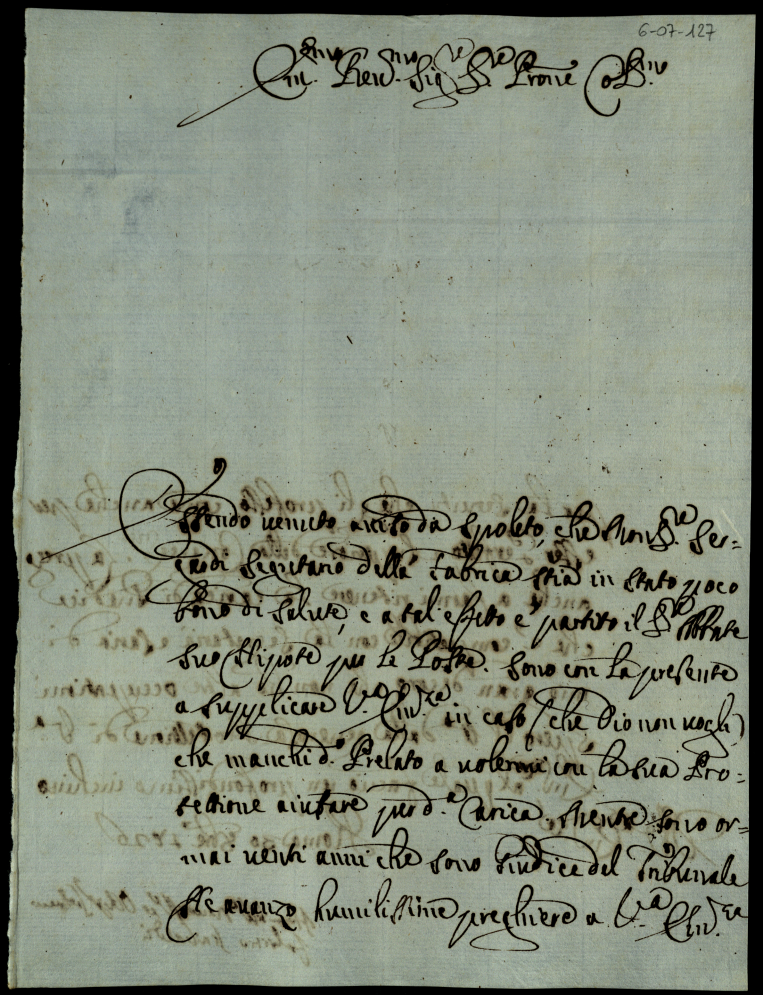 6-07-127
Em.mo Rev.mo Sig.re S.re Prone Col.mo
Essendo venuto aviso da Spoleto, che Mons.re Ser-
gardi Secretario della Fabrica stia in stato poco
bono di salute, e a tal effetto è partito il S.re Abbate
suo Nipote per le Poste. Sono con la presente
a supplicare V.a Em.za in caso (che Dio non vogli)
che manchi d.o Prelato a volermi con la sua Pro-
tettione aiutare per d.a Carica, mentre sono or-
mai venti anni che sono Giudice del Tribunale
Ne avanzo humilissime preghiere a V.a Em.za